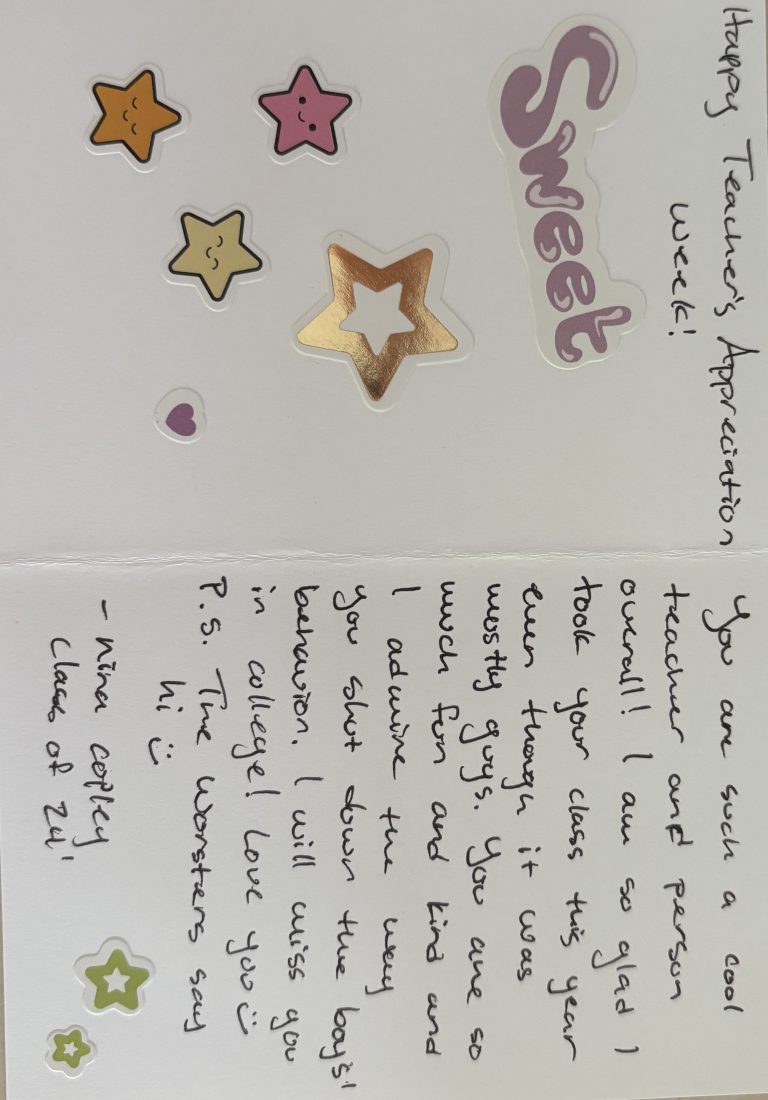 Happy Teacher's Appreciation
Week!
Sweet
You are such a cool
teacher and person
overall! I am so glad I
took your class this year
even though it was
mostly guys. You are so
much fun and kind and
I admire the way
you shut down the boys'
behavior. I will miss you
in college! Love you :)
P.S. The Worsters say
hi :)
- Nina Copley
Class of 24'